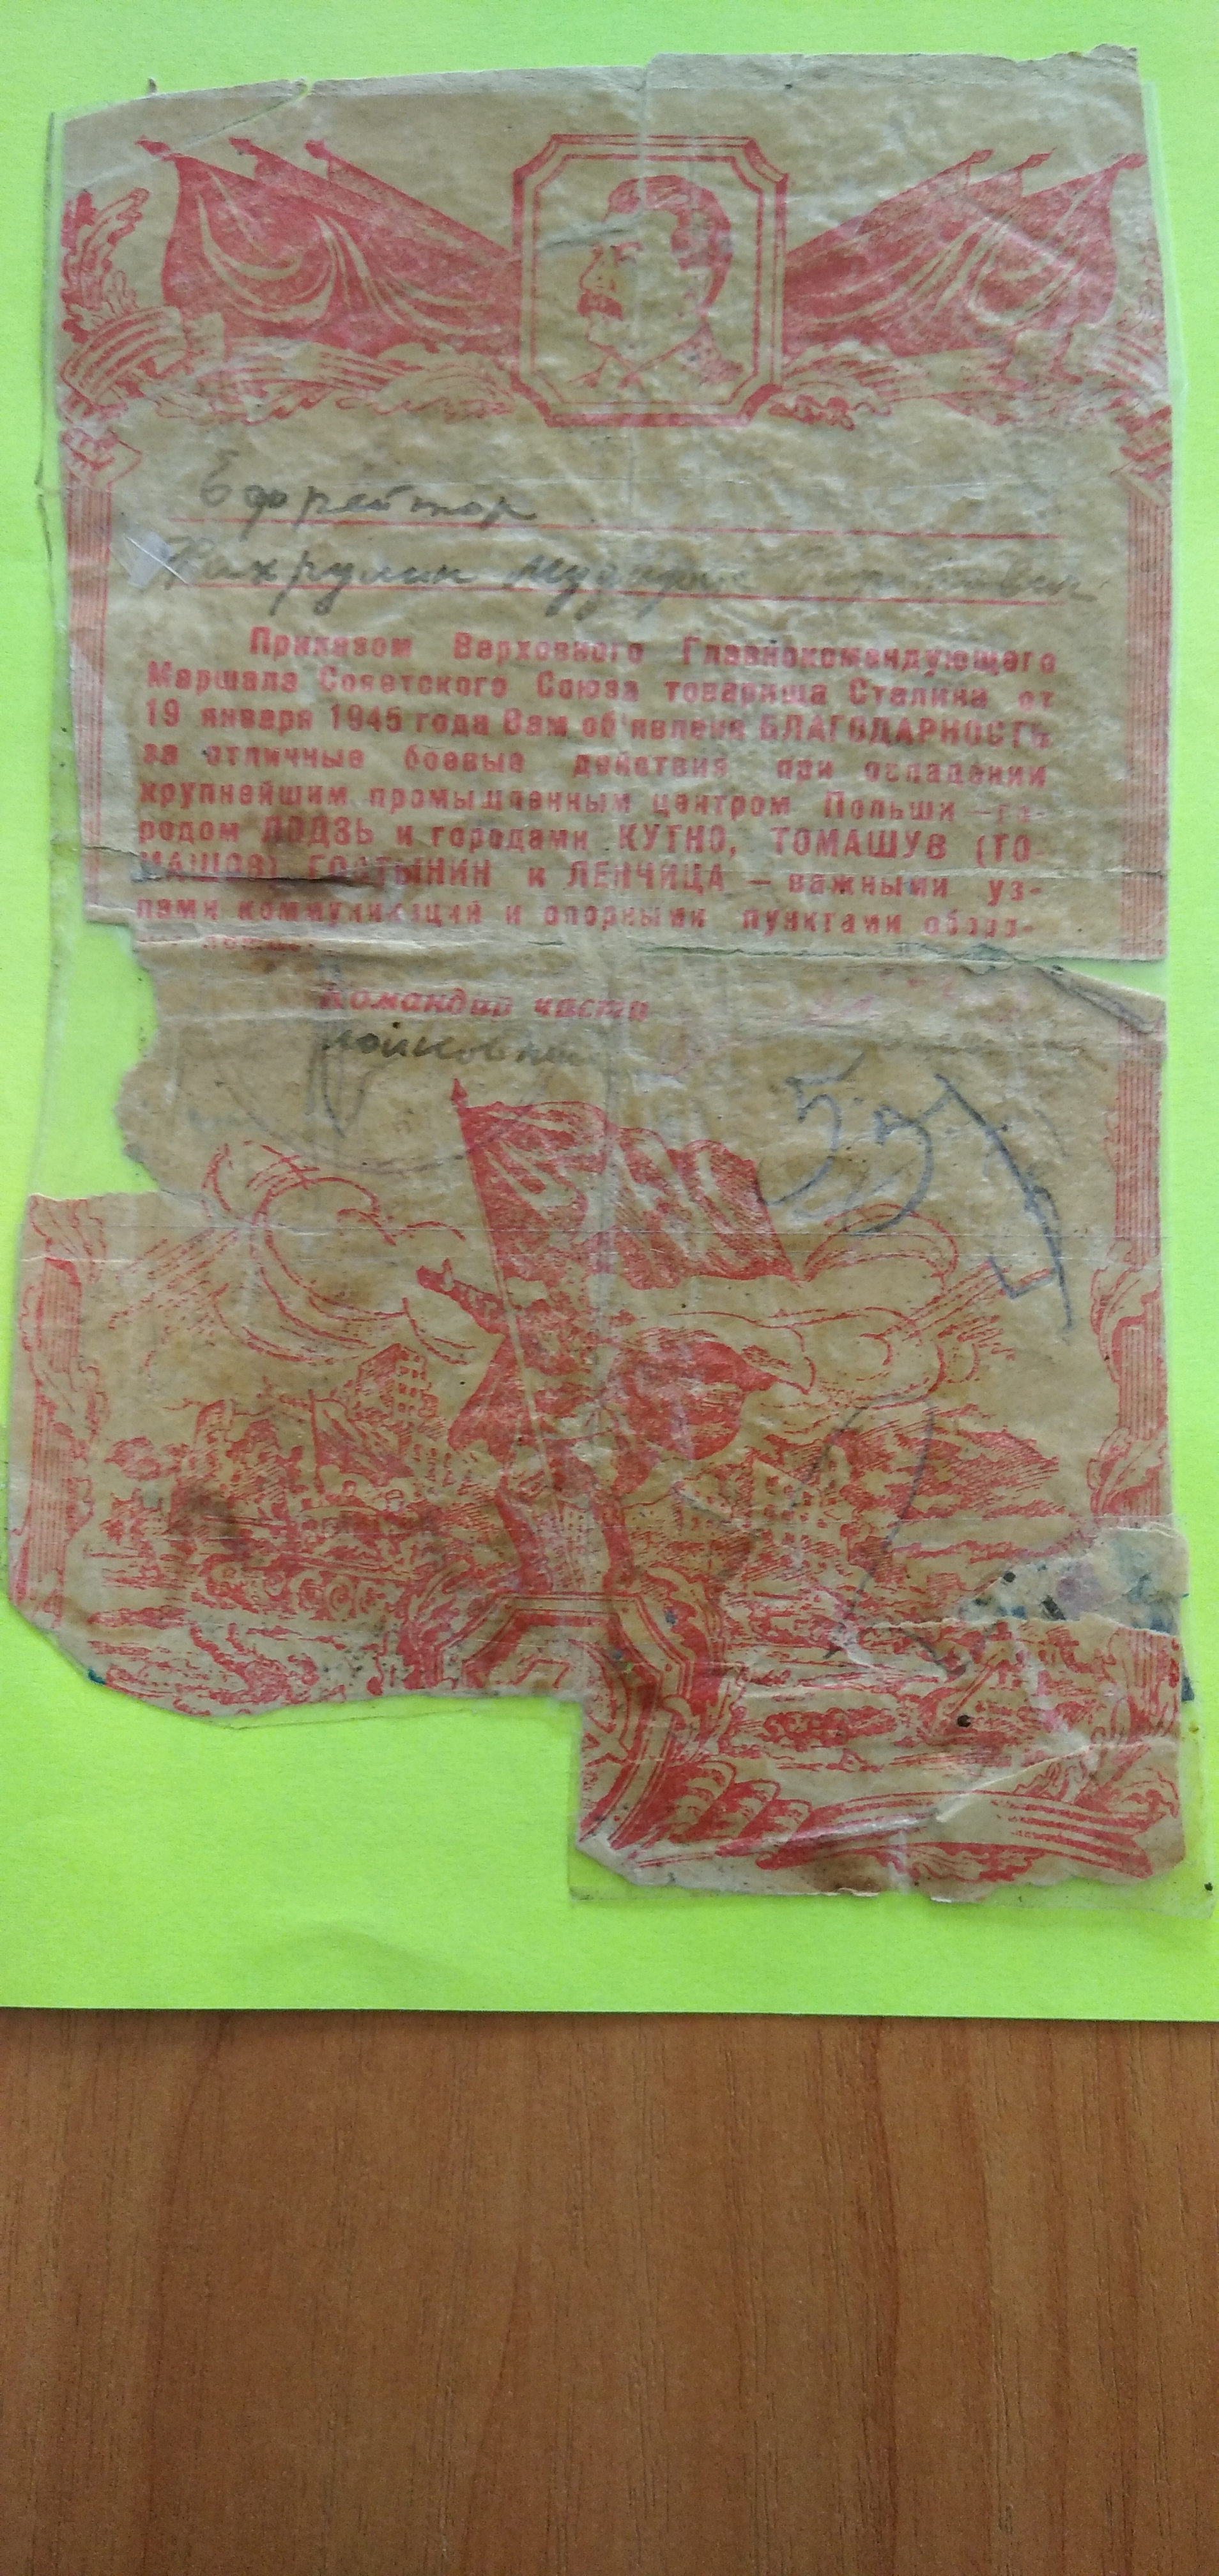 Ефрейтор
Приказом Верховного Главнокомандующего
Маршала Советского Союза товарища Сталина от
19 января 1945 года Вам об'явлена БЛАГОДАРНОСТЬ
за отличные боевые действия при овладении
крупнейшим промышленным центром Польши – го-
родом ЛОДЗЬ и городами КУТНО, ТОМАШУВ (ТО-
МАШОВ) ГОСТЫНИН и ЛЕНЧИЦА – важными уз-
лами коммуникаций и опорными пунктами оборо-
Командир части